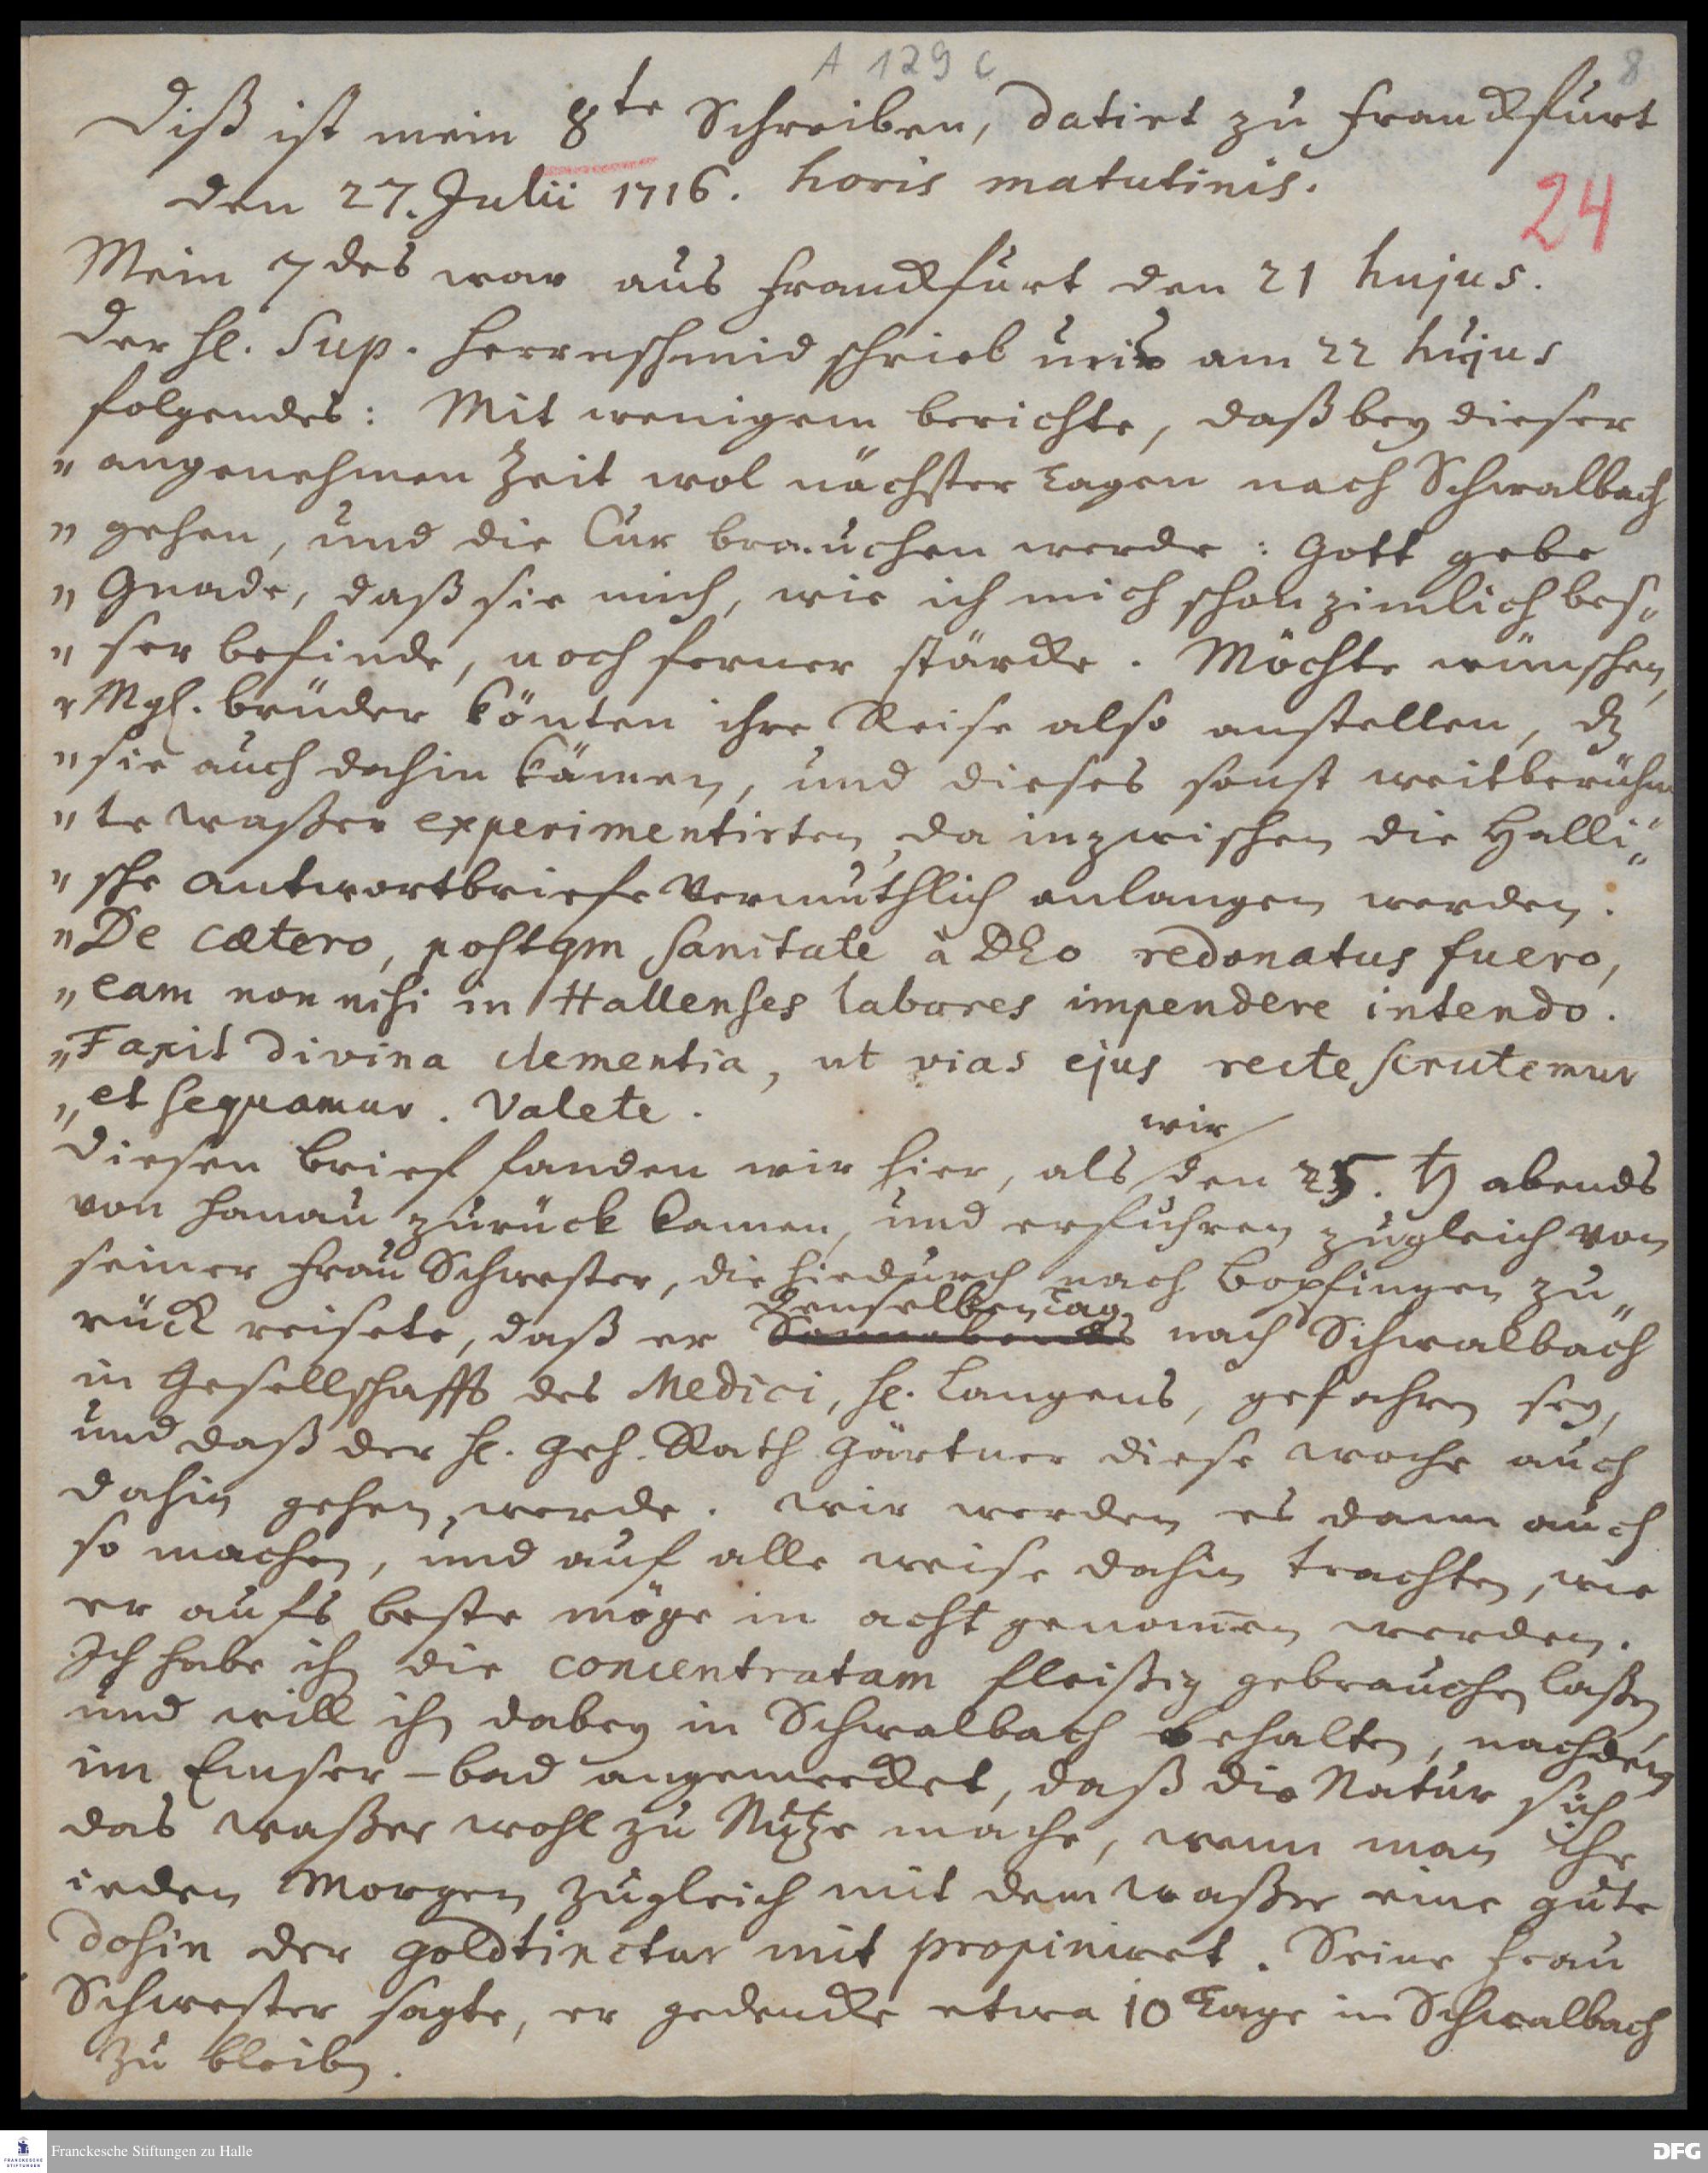 A 129 c 8
Diß ist mein 8te Schreiben, datirt zu Franckfurt
den 27. Julii 1716. horis matutinis.
24
Mein 7des war aus Franckfurt den 21 hujus.
Der H. Sup. Herrnschmid schrieb uns am 22 hujus
folgendes: Mit wenigem berichte, daß bey dieser
" angenehmen Zeit wol nächster Tagen nach Schwalbach
" gehen, und die Cur brauchen werde: Gott gebe
" Gnade, daß sie mich, wie ich mich schon zimlich bes-
" ser befinde, noch ferner stärcke. Möchte wünschen,
" Mgl. brüder könten ihre Reise also anstellen, dz
" sie auch dahin kämen, und dieses sonst weitberühm
" te waßer experimentirten, da inzwischen die Halli-
" sche antwortbriefe vermuthlich anlangen werden.
" De cætero, postqm sanitate à DEo redonatus fuero,
" eam non nisi in Hallenses labores impendere intendo.
" Faxit divina clementia, ut vias ejus recte scrutemur
" et sequamur. Valete.
Diesen brief fanden wir hier, als wir den 25. ♄ abends
von Hanau zurück kamen, und erfuhren zugleich von
seiner Frau Schwester, die hiedurch nach Bopfingen zu-
rück reisete, daß er denselben Tag nach Schwalbach
in Gesellschafft des Medici, H. Langens, gefahren sey,
und daß der H. Geh. Rath Gärtner diese woche auch
dahin gehen werde. Wir werden es dann auch
so machen, und auf alle weise dahin trachten, wie
er aufs beste möge in acht genommen werden.
Ich habe ihn die concentratam fleißig gebrauchen laßen
und will ihn dabey in Schwalbach behalten, nachdem
im Emser-bad angemercket, daß die Natur sich
das waßer wohl zu Nutze mache, wenn man ihr
ieden Morgen zugleich mit dem waßer eine gute
dosin der goldtinctur mit propiniret. Seine Frau
Schwester sagte, er gedencke etwa 10 Tage in Schwalbach
zu bleiben.
FRANCKESCHE STIFTUNGEN
Franckesche Stiftungen zu Halle
DFG